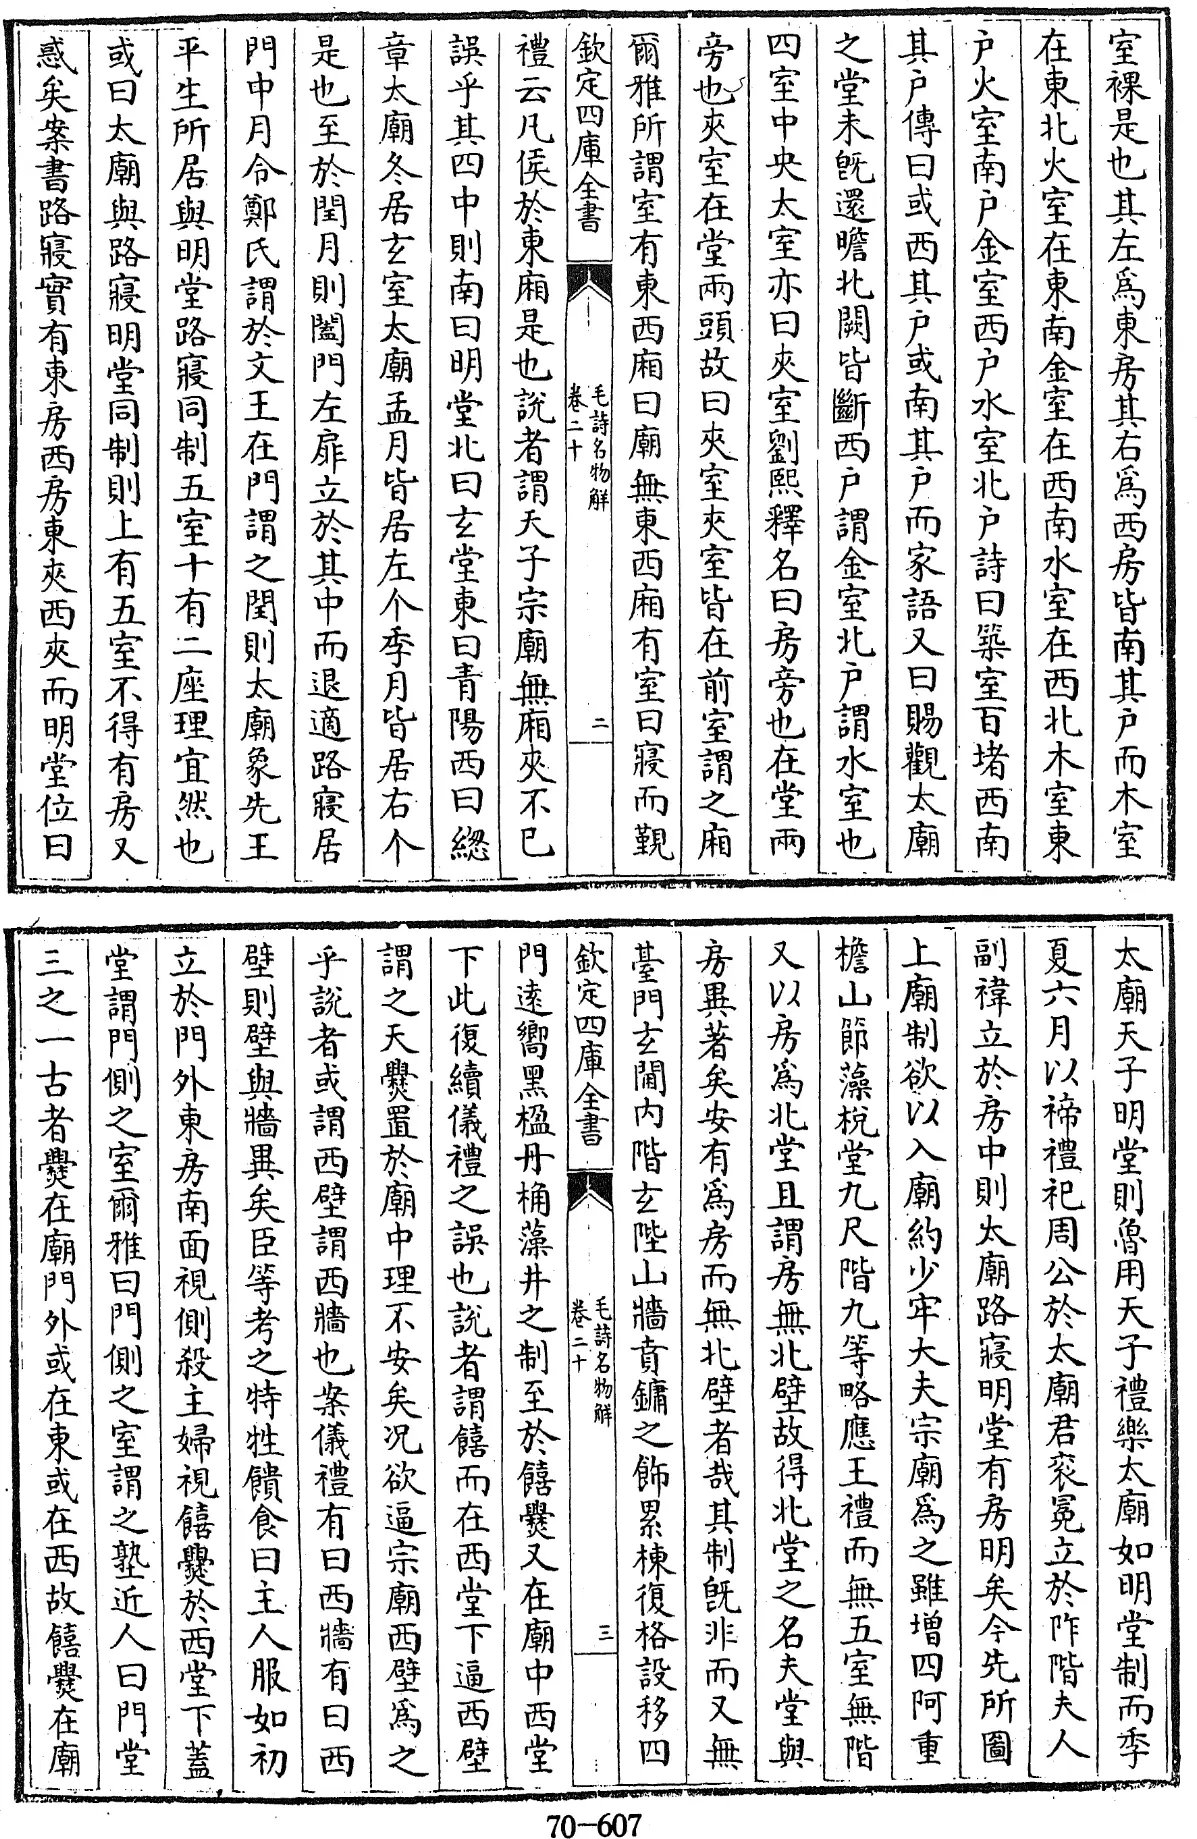 室祼是也其左爲東房其右爲西房皆南其戸而木室
在東北火室在東南金室在西南水室在西北木室東
戸火室南戸金室西戸水室北戸詩曰築室百堵西南
其戸傳曰或西其戸或南其戸而家語又曰賜觀太廟
之堂未旣還瞻北闕皆斷西戸謂金室北戸謂水室也
四室中央太室亦曰夾室劉熙釋名曰房旁也在堂兩
旁也夾室在堂兩頭故曰夾室夾室皆在前室謂之廂
爾雅所謂室有東西廂曰廟無東西廂有室曰寢而覲
欽定四庫全書
毛詩名物解
卷二十
二
禮云凡俟於東廂是也說者謂天子宗廟無廂夾不已
誤乎其四中則南曰明堂北曰玄堂東曰青陽西曰緫
章太廟冬居玄室太廟孟月皆居左个季月皆居右个
是也至於閏月則闔門左扉立於其中而退適路寢居
門中月令鄭氏謂於文王在門謂之閏則太廟象先王
平生所居與明堂路寢同制五室十有二座理宜然也
或曰太廟與路寢明堂同制則上有五室不得有房又
惑矣案書路寢實有東房西房東夾西夾而明堂位曰
太廟天子明堂則魯用天子禮樂太廟如明堂制而季
夏六月以禘禮祀周公於太廟君衮冕立於阼階夫人
副褘立於房中則太廟路寢明堂有房明矣今先所圖
上廟制欲以入廟約少牢大夫宗廟爲之雖增四阿重
檐山節藻梲堂九尺階九等略應王禮而無五室無階
又以房爲北堂且謂房無北壁故得北堂之名夫堂與
房異著矣安有爲房而無北壁者哉其制旣非而又無
臺門玄閫内階玄陛山牆賁鏞之飾累棟復格設移四
欽定四庫全書
毛詩名物解
卷二十
三
門遠嚮黑楹丹桷藻井之制至於饎爨又在廟中西堂
下此復續儀禮之誤也說者謂饎而在西堂下逼西壁
謂之天爨置於廟中理不安矣况欲逼宗廟西壁爲之
乎說者或謂西壁謂西牆也案儀禮有曰西牆有曰西
壁則壁與牆異矣臣等考之特牲饋食曰主人服如初
立於門外東房南面視側殺主婦視饎爨於西堂下蓋
堂謂門側之室爾雅曰門側之室謂之塾近人曰門堂
三之一古者爨在廟門外或在東或在西故饎爨在廟
70-607